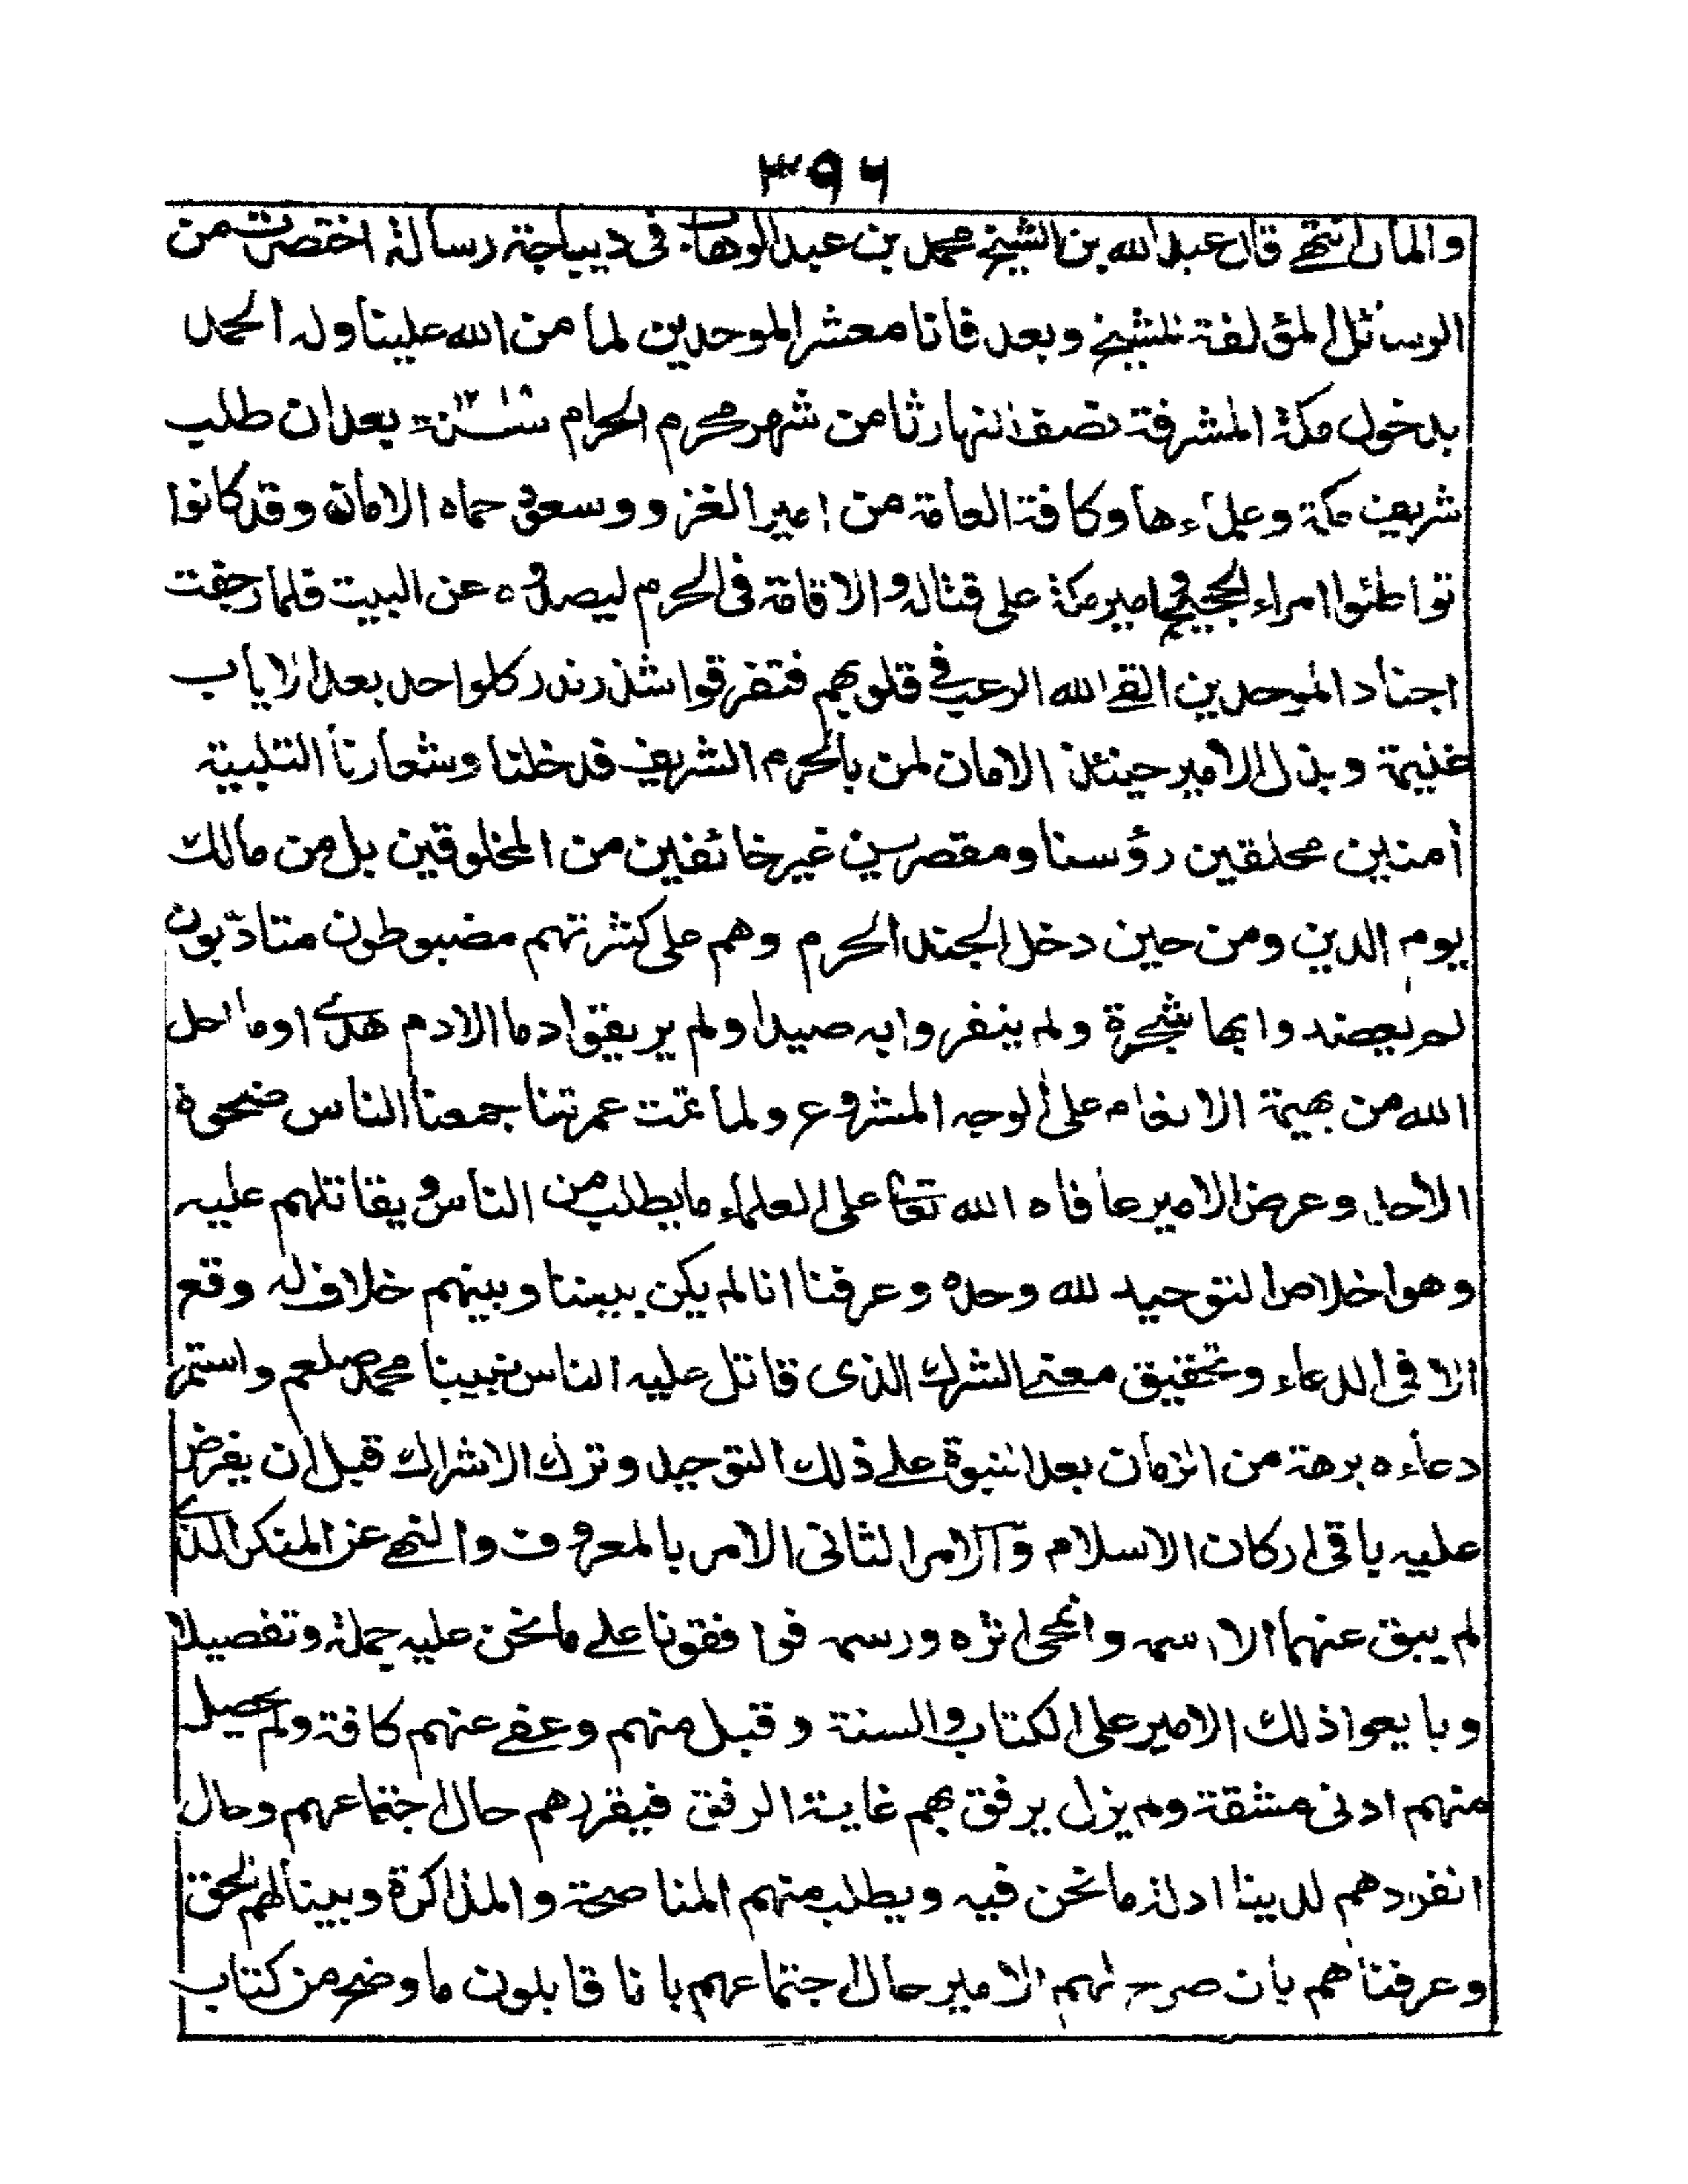 ۳۹۶
والمأل انتهى قال عبد الله بن الشيخ محمد بن عبد الوهاب فى ديباجة رسالة اختصرت من
الرسائل المؤلفة للشيخ وبعد فانا معشر الموحدين لما من الله علينا وله الحمد
بدخول مكة المشرفة نصف النهار ثامن شهر محرم الحرام سنة ١٢١٨ بعد ان طلب
شريف مكة وعلماءها وكافة العامة من امير الغزو وسعود حماه الامان وقد كانوا
تواطئوا امراء الحجيج وامير مكة على قتاله والاقامة فى الحرم ليصدوه عن البيت فلما زحفت
اجناد الموحدين القى الله الرعب فى قلوبهم فتفرقوا شذر نذر كلواحد بعد الاياب
غنيمة وبذل الامير حينئذ الامان لمن بالحرم الشريف فدخلنا وشعارنا التلبية
أمنين محلقين رؤسنا ومقصرين غير خائفين من المخلوقين بل من مالك
يوم الدين ومن حين دخل الجند الحرم وهم على كثرتهم مضبوطون متادبون
لم يعضدوا بها شجرة ولم ينفروا به صيدا ولم يريقوا دما الا دم هدى او ما احل
الله من بهيمة الانعام على الوجه المشروع ولما تمت عمرتنا جمعنا الناس ضحوة
الأحد وعرض الامير عافاه الله تعا على العلماء ما يطلب من الناس ويقاتلهم عليه
وهو اخلاص التوحيد لله وحده وعرفنا انا لم يكن بيننا وبينهم خلاف له وقع
الا فى الدعاء وتحقيق معنى الشرك الذى قاتل عليه الناس نبينا محمد صلعم واستمر
دعاءه برهة من الزمان بعد النبوة على ذلك التوحيد وترك الاشراك قبل ان يفرض
عليه باقى اركان الاسلام والامر الثانى الامر بالمعروف والنهى عن المنكر الذى
لم يبق عنهما الا اسمه وانمحى اثره ورسمه فوافقونا على ما نحن عليه جملة وتفصيلا
وبايعوا ذلك الامير على الكتاب والسنة وقبل منهم وعفى عنهم كافة ولم يحصل
منهم ادنى مشقة ولم يزل يرفق بهم غاية الرفق فيقررهم حال اجتماعهم وحال
انفردهم لدينا ادلة ما نحن فيه ويطلب منهم المناصحة والمذاكرة وبينا لهم الحق
وعرفناهم بان صرح لهم الامير حال اجتماعهم بانا قابلون ما وضح من كتاب